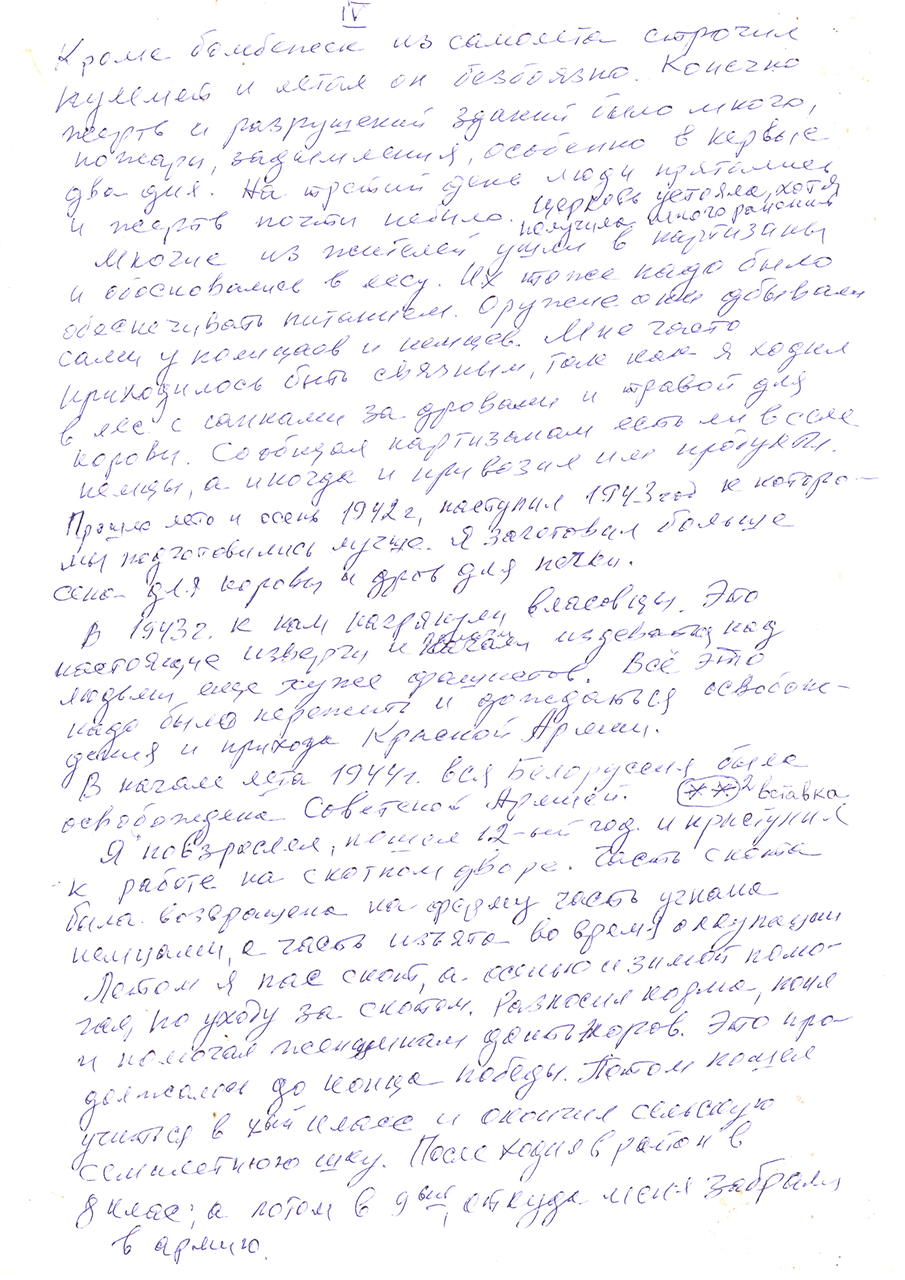 IV
Кроме бомбёжек из самолёта строчил
пулемёт и летал он безбоязно. Конечно
жертв и разрушений зданий было много,
пожары, задымления, особенно в первые
два дня. На третий день люди прятались
и жертв почти небыло. Церковь устояла, хотя
получила много ранений
Многие из жителей ушли в партизаны
и обосновались в лесу. Их тоже надо было
обеспечивать питанием. Оружие они добывали
сами у полицаев и немцев. Мне часто
приходилось быть связным, так как я ходил
в лес с санками за дровами и травой для
коровы. Сообщал партизанам есть ли в селе
немцы, а иногда и привозил им продукты.
Прошло лето и осень 1942 г, наступил 1943 год к которо-
му подготовились лучше. Я заготовил больше
сена для коровы и дров для печки.
В 1943 г. к нам нагрянули власовцы. Это
настоящие изверги и начали издеватся над
людьми еще хуже фашистов. Всё это
надо было пережить и дождаться освобож-
дения и прихода Красной Армии.
В начале лета 1944 г. вся Белоруссия была
освобождена Советской Армией. ** 2 вставка
Я повзрослел, пошел 12-ый год и приступил
к работе на скотном дворе. Часть скота
была возвращена на ферму часть угнана
немцами, а часть изъята во время оккупации
Летом я пас скот, а осенью и зимой помо-
гал по уходу за скотом. Разносил корма, поил
и помогал женщинам доить коров. Это про-
должалось до конца победы. Потом пошел
учиться в класс и окончил сельскую
семилетнюю шку. После ходил в район в
8 клас; а потом в 9ый, откуда меня забрали
в армию.